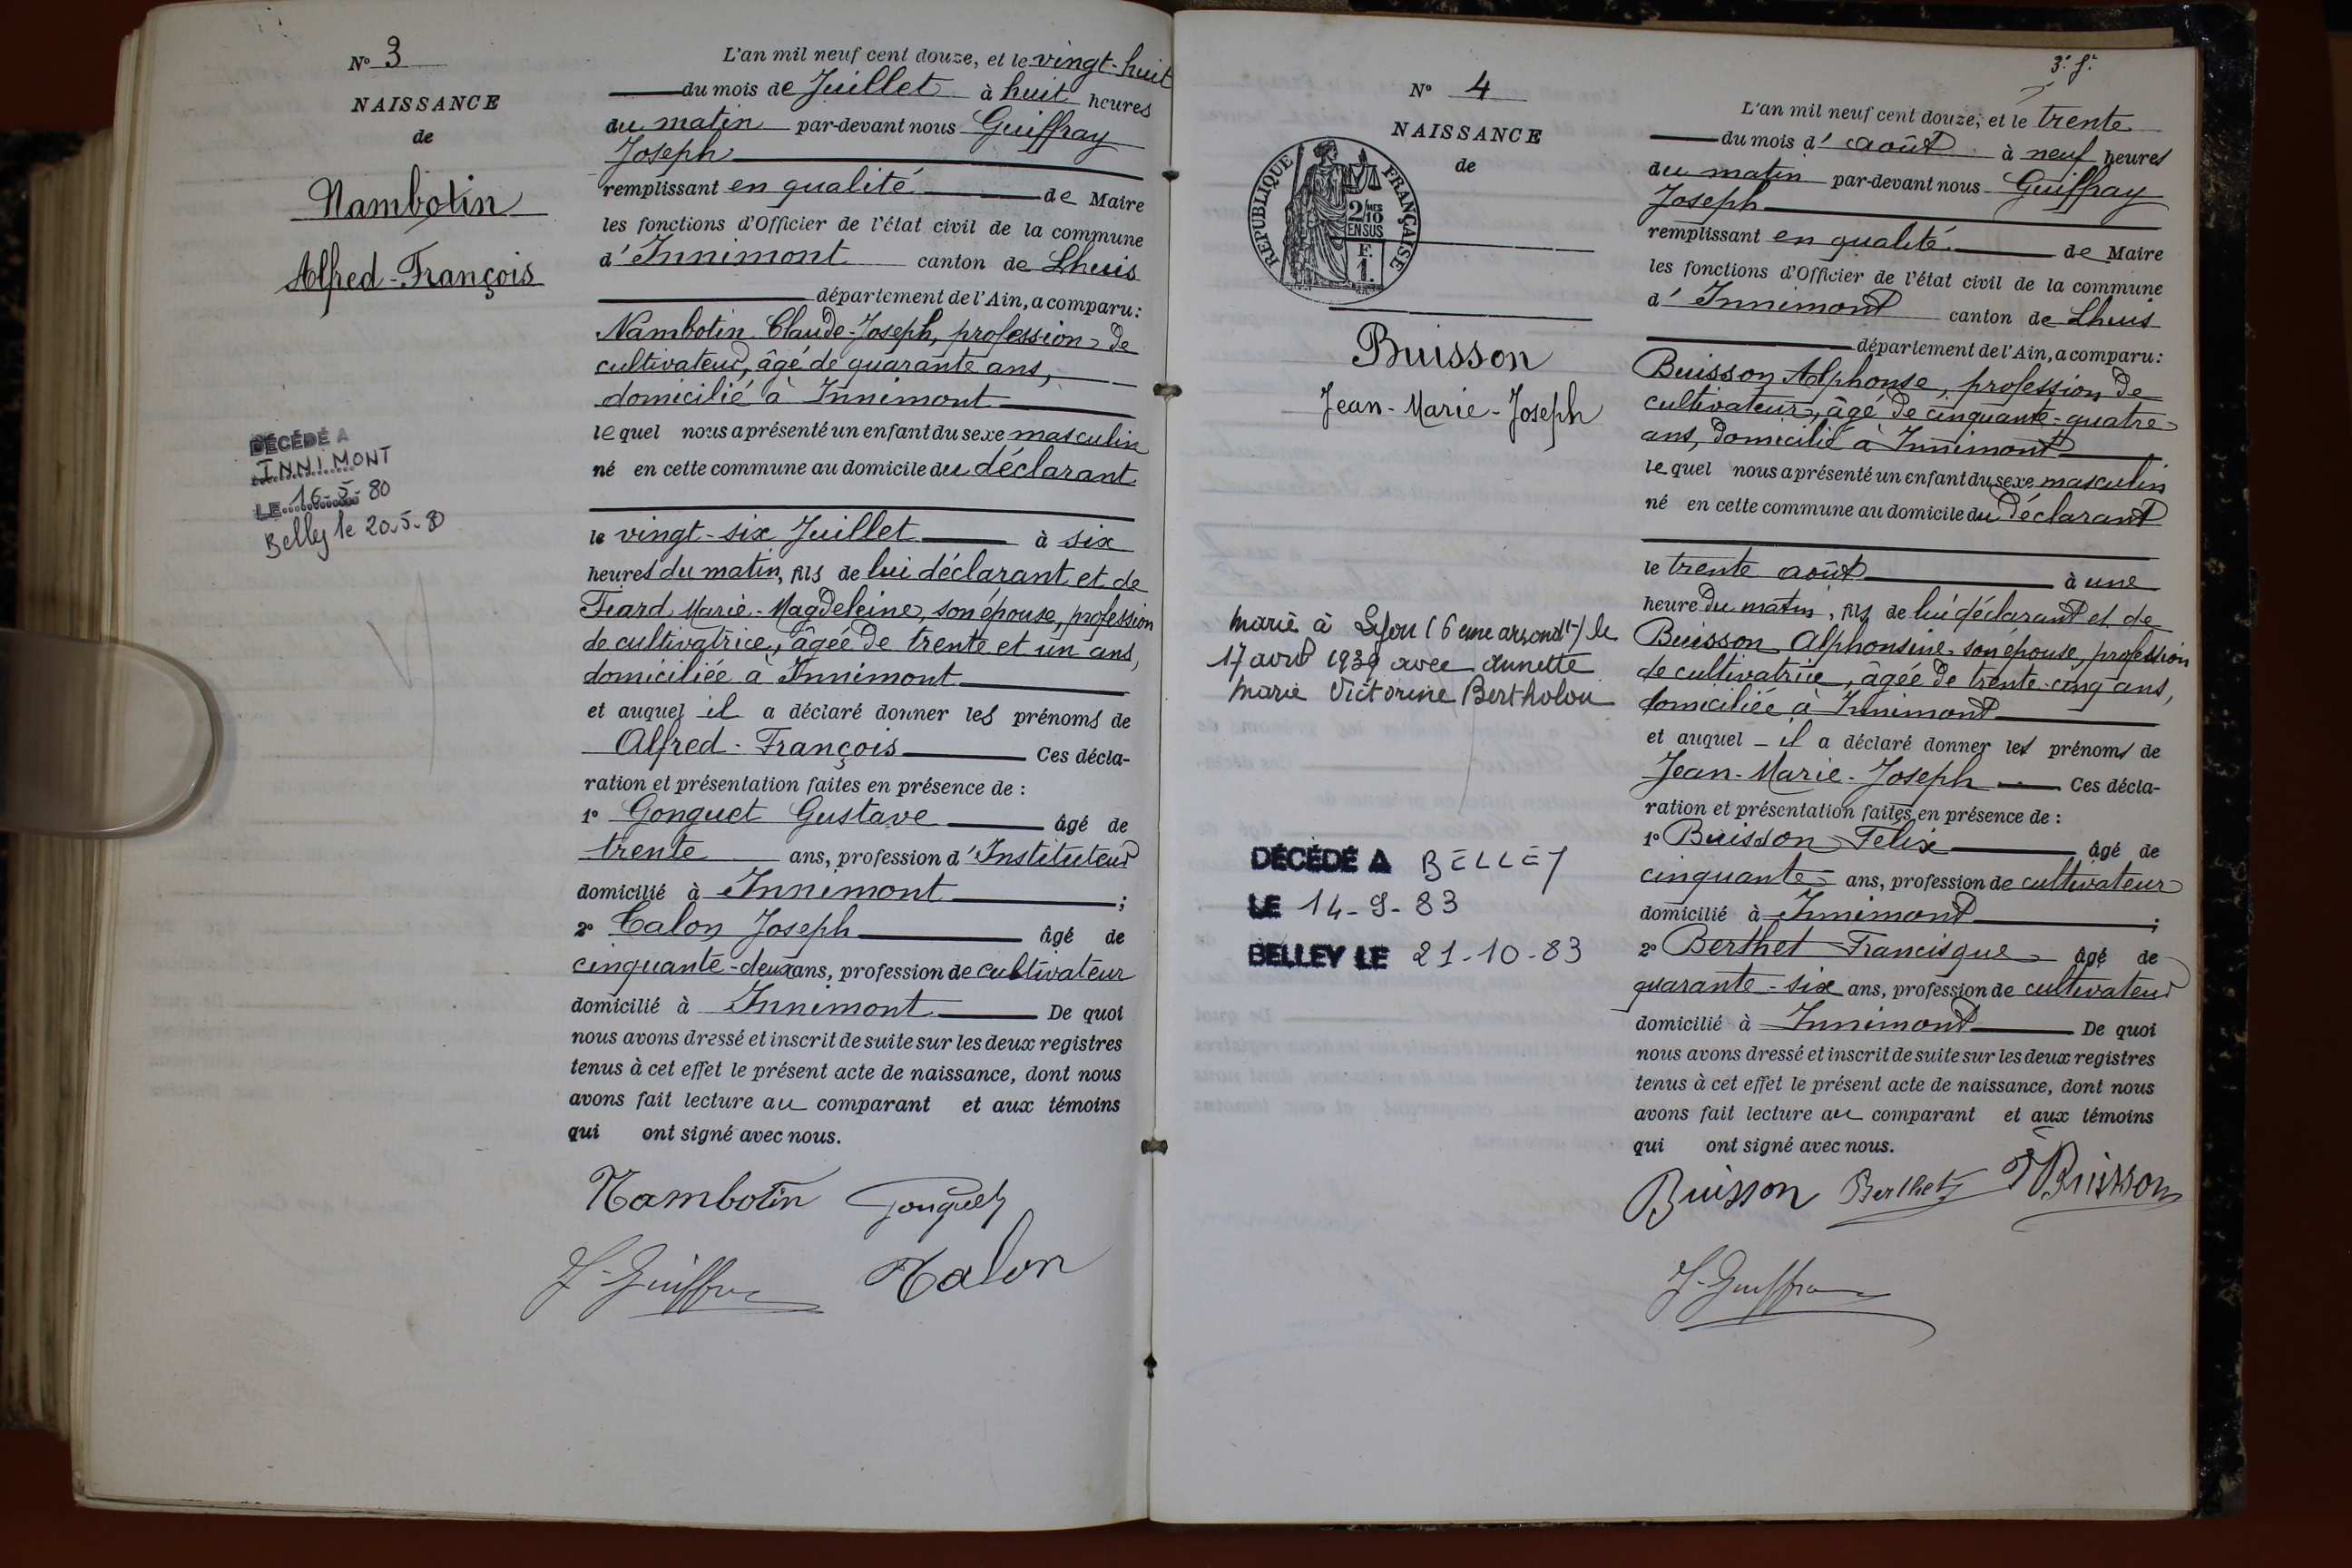 N° 3
NAISSANCE
de
Nambotin
Alfred-François
DÉCÉDÉ A
INNIMONT
LE 16-5-80
Belley le 20-5-80
L'an mil neuf cent douze, et le vingt-huit
du mois de Juillet à huit heures
du matin par-devant nous Guiffray
Joseph
remplissant en qualité de Maire
les fonctions d'Officier de l'état civil de la commune
d'Innimont canton de Lhuis
département de l'Ain, a comparu:
Nambotin Claude-Joseph, profession de
cultivateur, âgé de quarante ans,
domicilié à Innimont
lequel nous a présenté un enfant du sexe masculin
né en cette commune au domicile du déclarant
le vingt-six Juillet à six
heures du matin, fils de lui déclarant et de
Fiard Marie-Magdeleine, son épouse, profession
de cultivatrice, âgée de trente et un ans,
domiciliée à Innimont
et auquel il a déclaré donner les prénoms de
Alfred-François Ces décla-
ration et présentation faites en présence de :
1° Gonguet Gustave âgé de
trente ans, profession d'Instituteur
domicilié à Innimont ;
2° Calon Joseph âgé de
cinquante-deux ans, profession de cultivateur
domicilié à Innimont De quoi
nous avons dressé et inscrit de suite sur les deux registres
tenus à cet effet le présent acte de naissance, dont nous
avons fait lecture au comparant et aux témoins
qui ont signé avec nous.
Nambotin Gonguet
J. Guiffray Calon
3e f.
N° 4
NAISSANCE
de
RÉPUBLIQUE FRANÇAISE
2/10 MES
EN SUS
F.
1.
Buisson
Jean-Marie-Joseph
marié à Lyon (6eme arrondt) le
17 avril 1939 avec Annette
Marie Victorine Bertholon
DÉCÉDÉ A BELLEY
LE 14-9-83
BELLEY LE 21-10-83
L'an mil neuf cent douze, et le trente
du mois d'août à neuf heures
du matin par-devant nous Guiffray
Joseph
remplissant en qualité de Maire
les fonctions d'Officier de l'état civil de la commune
d'Innimont canton de Lhuis
département de l'Ain, a comparu:
Buisson Alphonse, profession de
cultivateur, âgé de cinquante-quatre
ans, domicilié à Innimont
lequel nous a présenté un enfant du sexe masculin
né en cette commune au domicile du déclarant
le trente août à une
heure du matin, fils de lui déclarant et de
Buisson Alphonsine, son épouse, profession
de cultivatrice, âgée de trente-cinq ans,
domiciliée à Innimont
et auquel il a déclaré donner les prénoms de
Jean-Marie-Joseph Ces décla-
ration et présentation faites en présence de :
1° Buisson Félix âgé de
cinquante ans, profession de cultivateur
domicilié à Innimont ;
2° Berthet Francisque âgé de
quarante-six ans, profession de cultivateur
domicilié à Innimont De quoi
nous avons dressé et inscrit de suite sur les deux registres
tenus à cet effet le présent acte de naissance, dont nous
avons fait lecture au comparant et aux témoins
qui ont signé avec nous.
Buisson Berthet F Buisson
J. Guiffray